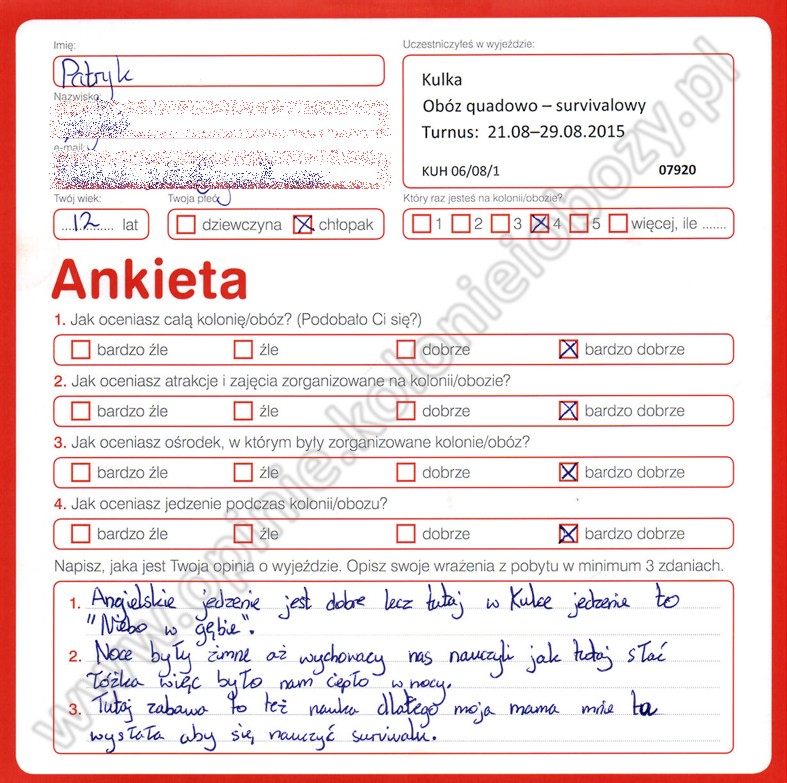 Imię:
Uczestniczyłeś w wyjeździe:
Patryk
Kulka
Obóz quadowo – survivalowy
Turnus: 21.08–29.08.2015
KUH 06/08/1 07920
Nazwisko:
e-mail:
Twój wiek:
Twoja płeć:
Który raz jesteś na kolonii/obozie?
12 lat
dziewczyna chłopak
1 2 3 4 5 więcej, ile .......
Ankieta
1. Jak oceniasz całą kolonię/obóz? (Podobało Ci się?)
bardzo źle źle dobrze bardzo dobrze
2. Jak oceniasz atrakcje i zajęcia zorganizowane na kolonii/obozie?
bardzo źle źle dobrze bardzo dobrze
3. Jak oceniasz ośrodek, w którym były zorganizowane kolonie/obóz?
bardzo źle źle dobrze bardzo dobrze
4. Jak oceniasz jedzenie podczas kolonii/obozu?
bardzo źle źle dobrze bardzo dobrze
Napisz, jaka jest Twoja opinia o wyjeździe. Opisz swoje wrażenia z pobytu w minimum 3 zdaniach.
1. Angielskie jedzenie jest dobre lecz tutaj w Kulce jedzenie to
"Niebo w gębie".
2. Noce były zimne aż wychowacy nas nauczyli jak tutaj słać
łóżka więc było nam ciepło w nocy.
3. Tutaj zabawa to też nauka dlatego moja mama mnie tu
wysłała aby się nauczyć survivalu.
www.opinie.kolonieiobozy.pl